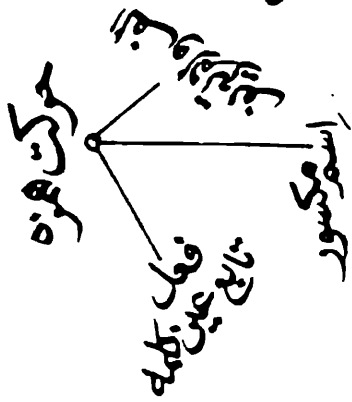 حرکت همزه
اسم
مکسور
فعل
تابع عین کلمه